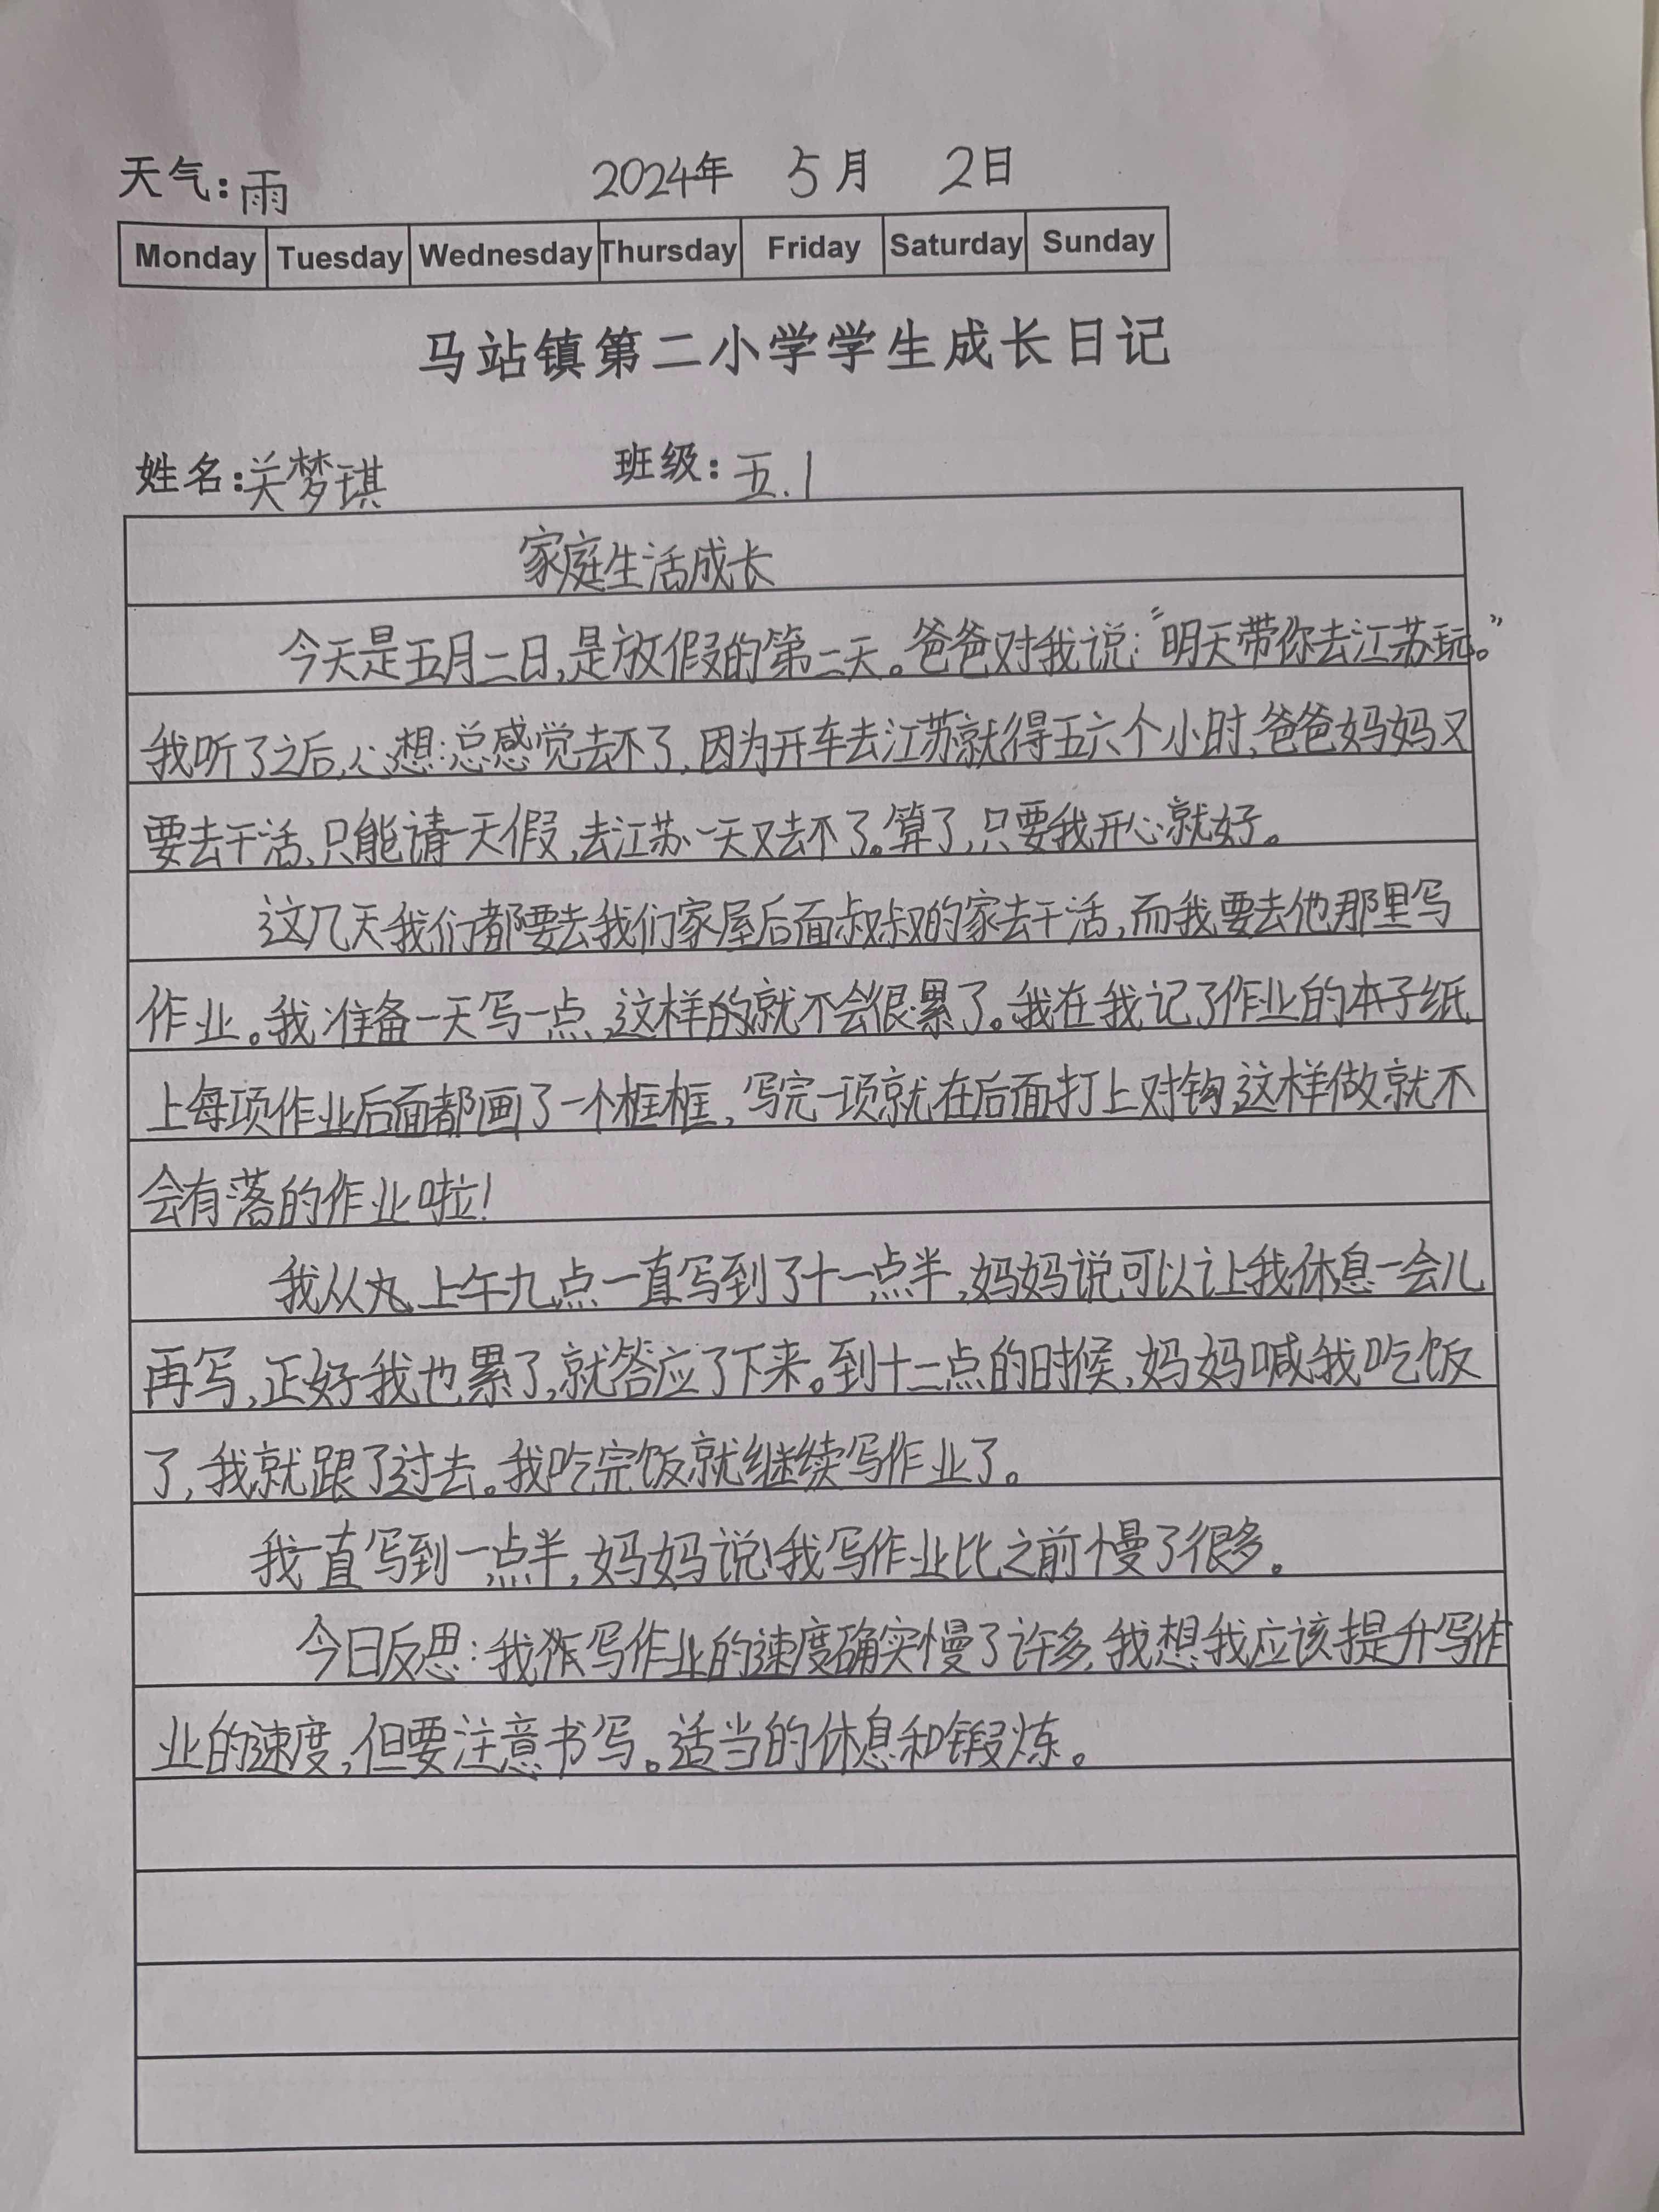 天气:雨 2024年 5月 2日
Monday Tuesday Wednesday Thursday Friday Saturday Sunday
马站镇第二小学学生成长日记
姓名:关梦琪 班级:五.1
家庭生活成长
今天是五月二日,是放假的第二天。爸爸对我说:“明天带你去江苏玩。”
我听了之后,心想:总感觉去不了,因为开车去江苏就得五六个小时,爸爸妈妈又
要去干活,只能请一天假,去江苏一天又去不了。算了,只要我开心就好。
这几天我们都要去我们家屋后面叔叔的家去干活,而我要去他那里写
作业。我准备一天写一点,这样的就不会很累了。我在我记了作业的本子纸
上每项作业后面都画了一个框框,写完一项就在后面打上对钩,这样做就不
会有落的作业啦!
我从丸上午九点一直写到了十一点半,妈妈说可以让我休息一会儿
再写,正好我也累了,就答应了下来。到十二点的时候,妈妈喊我吃饭
了,我就跟了过去。我吃完饭就继续写作业了。
我一直写到一点半,妈妈说我写作业比之前慢了很多。
今日反思:我作写作业的速度确实慢了许多,我想我应该提升写作
业的速度,但要注意书写。适当的休息和锻炼。